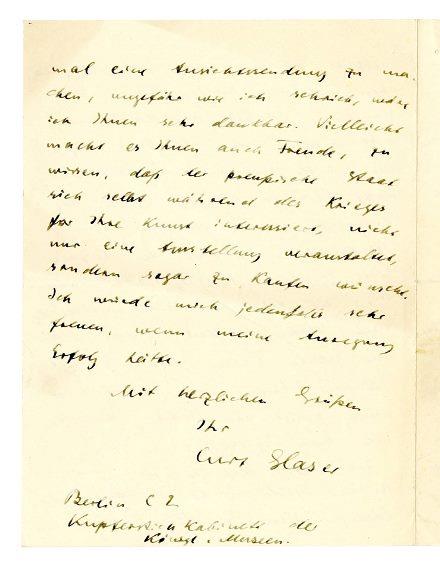 mal eine Ansichtssendung zu ma-
chen, ungefähr wie ich schrieb, wäre
ich Ihnen sehr dankbar. Vielleicht
macht es Ihnen auch Freude, zu
wissen, daß der preußische Staat
sich selbst während des Krieges
für Ihre Kunst interessiert, nicht
nur eine Ausstellung veranstaltet,
sondern sogar zu kaufen wünscht.
Ich würde mich jedenfalls sehr
freuen, wenn meine Anregung
Erfolg hätte.
Mit herzlichen Grüßen
Ihr
Curt Glaser
Berlin C 2
Kupferstichkabinett der
Königl. Museen.